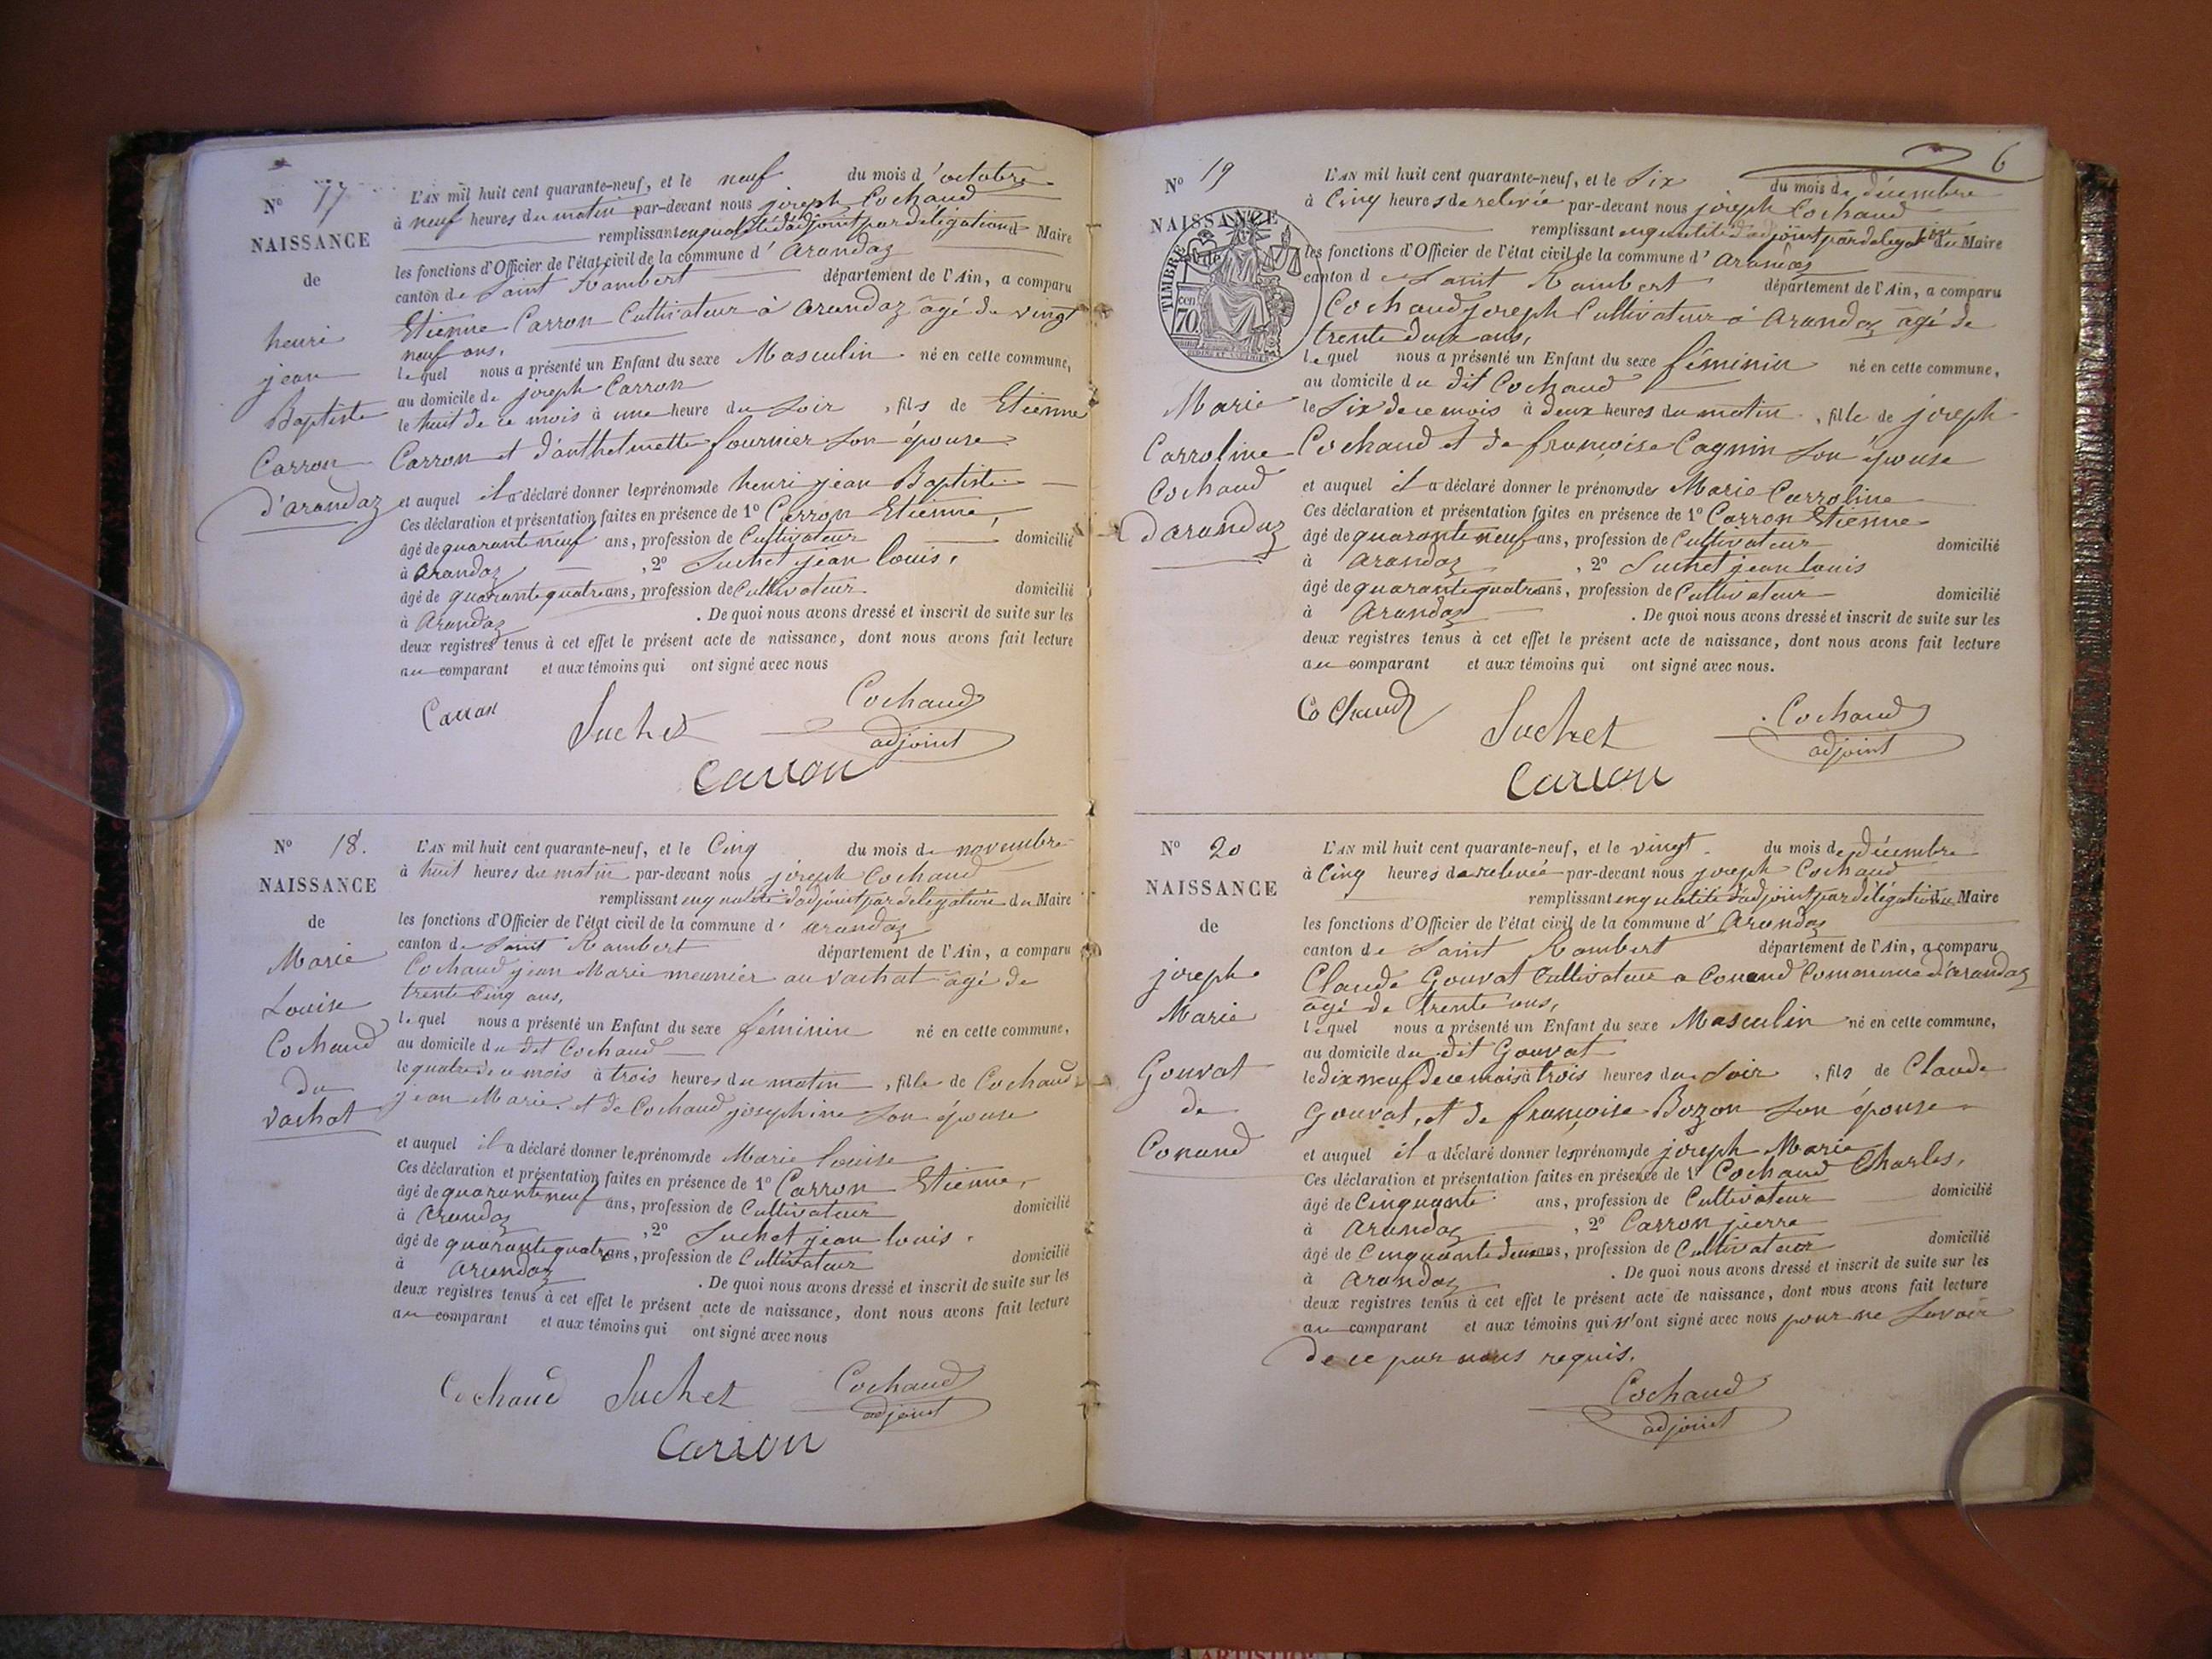 N° 17
NAISSANCE
de
henri
jean
Baptiste
Carron
d'arandaz
L'AN mil huit cent quarante-neuf, et le neuf du mois d'octobre
à neuf heures du matin par-devant nous joseph Cochaud
remplissant en qualité d'adjoint par délégation du Maire
les fonctions d'Officier de l'état civil de la commune d'Arandaz
canton de Saint Rambert département de l'Ain, a comparu
Etienne Carron Cultivateur à Arandaz âgé de vingt
neuf ans,
lequel nous a présenté un Enfant du sexe Masculin né en cette commune,
au domicile de joseph Carron
le huit de ce mois à une heure du Soir, fils de Etienne
Carron et d'anthelmette fournier Son épouse
et auquel il a déclaré donner les prénoms de henri jean Baptiste
Ces déclaration et présentation faites en présence de 1° Carron Etienne,
âgé de quarante neuf ans, profession de Cultivateur domicilié
à Arandaz, 2° Suchet jean louis,
âgé de quarante quatre ans, profession de Cultivateur domicilié
à Arandaz. De quoi nous avons dressé et inscrit de suite sur les
deux registres tenus à cet effet le présent acte de naissance, dont nous avons fait lecture
au comparant et aux témoins qui ont signé avec nous
Carron Suchet Cochaud
adjoint
Carron
N° 18.
NAISSANCE
de
Marie
Louise
Cochaud
du
vachat
L'AN mil huit cent quarante-neuf, et le Cinq du mois de novembre
à huit heures du matin par-devant nous joseph Cochaud
remplissant en qualité d'adjoint par délégation du Maire
les fonctions d'Officier de l'état civil de la commune d'arandaz
canton de Saint Rambert département de l'Ain, a comparu
Cochaud jean Marie meunier au vachat âgé de
trente Cinq ans,
lequel nous a présenté un Enfant du sexe féminin né en cette commune,
au domicile du dit Cochaud
le quatre de ce mois à trois heures du matin, fille de Cochaud
jean Marie. et de Cochaud josephine Son épouse
et auquel il a déclaré donner les prénoms de Marie louise
Ces déclaration et présentation faites en présence de 1° Carron Etienne,
âgé de quarante neuf ans, profession de Cultivateur domicilié
à Arandaz, 2° Suchet jean louis,
âgé de quarante quatre ans, profession de Cultivateur domicilié
à arandaz. De quoi nous avons dressé et inscrit de suite sur les
deux registres tenus à cet effet le présent acte de naissance, dont nous avons fait lecture
au comparant et aux témoins qui ont signé avec nous
Cochaud Suchet Cochaud
adjoint
Carron
6
N° 19
NAISSANCE
de
TIMBRE
cen
70
Marie
Carroline
Cochaud
d'arandaz
L'AN mil huit cent quarante-neuf, et le Six du mois de décembre
à Cinq heures de relevée par-devant nous joseph Cochaud
remplissant en qualité d'adjoint par délégation du Maire
les fonctions d'Officier de l'état civil de la commune d'Arandaz
canton de Saint Rambert département de l'Ain, a comparu
Cochaud joseph Cultivateur à Arandaz âgé de
trente deux ans,
lequel nous a présenté un Enfant du sexe féminin né en cette commune,
au domicile du dit Cochaud
le Six de ce mois à deux heures du matin, fille de joseph
Cochaud et de françoise Cagnin Son épouse
et auquel il a déclaré donner le prénoms des Marie Carroline
Ces déclaration et présentation faites en présence de 1° Carron Etienne
âgé de quarante neuf ans, profession de Cultivateur domicilié
à Arandaz, 2° Suchet jean louis
âgé de quarante quatre ans, profession de Cultivateur domicilié
à Arandaz. De quoi nous avons dressé et inscrit de suite sur les
deux registres tenus à cet effet le présent acte de naissance, dont nous avons fait lecture
au comparant et aux témoins qui ont signé avec nous.
Cochaud Suchet Cochaud
adjoint
Carron
N° 20
NAISSANCE
de
joseph
Marie
Gouvat
de
Conand
L'AN mil huit cent quarante-neuf, et le vingt du mois de décembre
à Cinq heures de relevée par-devant nous joseph Cochaud
remplissant en qualité d'adjoint par délégation du Maire
les fonctions d'Officier de l'état civil de la commune d'Arandaz
canton de Saint Rambert département de l'Ain, a comparu
Claude Gouvat Cultivateur a Conand Commune d'arandaz
âgé de trente ans,
lequel nous a présenté un Enfant du sexe Masculin né en cette commune,
au domicile du dit Gouvat
le dix neuf de ce mois à trois heures du Soir, fils de Claude
Gouvat, et de françoise Bozon Son épouse
et auquel il a déclaré donner les prénoms de joseph Marie
Ces déclaration et présentation faites en présence de 1° Cochaud Charles,
âgé de Cinquante ans, profession de Cultivateur domicilié
à Arandaz, 2° Carron pierre
âgé de Cinquante deux ans, profession de Cultivateur domicilié
à Arandaz. De quoi nous avons dressé et inscrit de suite sur les
deux registres tenus à cet effet le présent acte de naissance, dont nous avons fait lecture
au comparant et aux témoins qui n'ont signé avec nous pour ne Savoir
de ce par nous requis.
Cochaud
adjoint